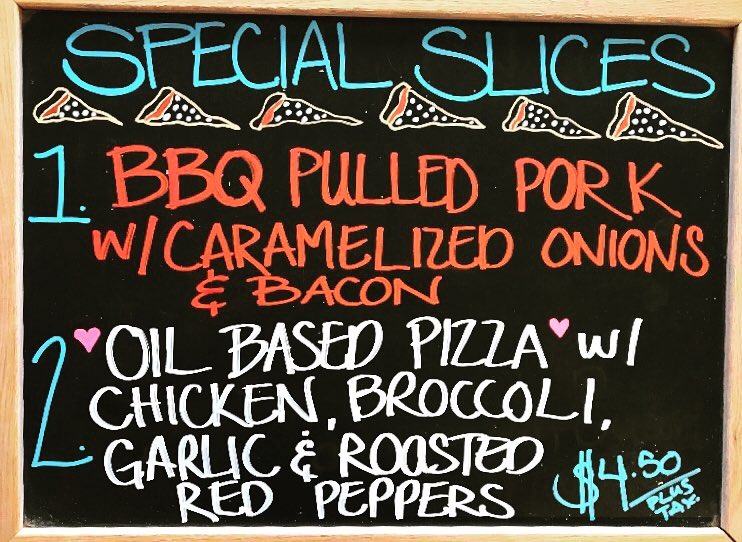 SPECIAL SLICES
1. BBQ PULLED PORK
W/CARAMELIZED ONIONS
& BACON
2. OIL BASED PIZZA W/
CHICKEN, BROCCOLI,
GARLIC & ROASTED
RED PEPPERS
$4.50
PLUS
TAX.